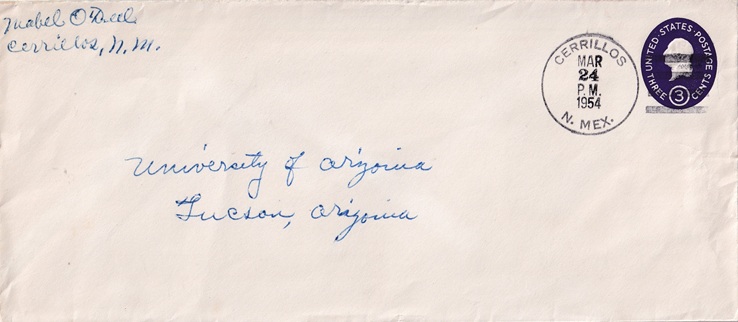 Mabel O'Dell
Cerrillos, N.M.
CERRILLOS
MAR
24
P.M.
1954
N. MEX.
UNITED STATES POSTAGE
THREE 3 CENTS
University of Arizona
Tucson, Arizona